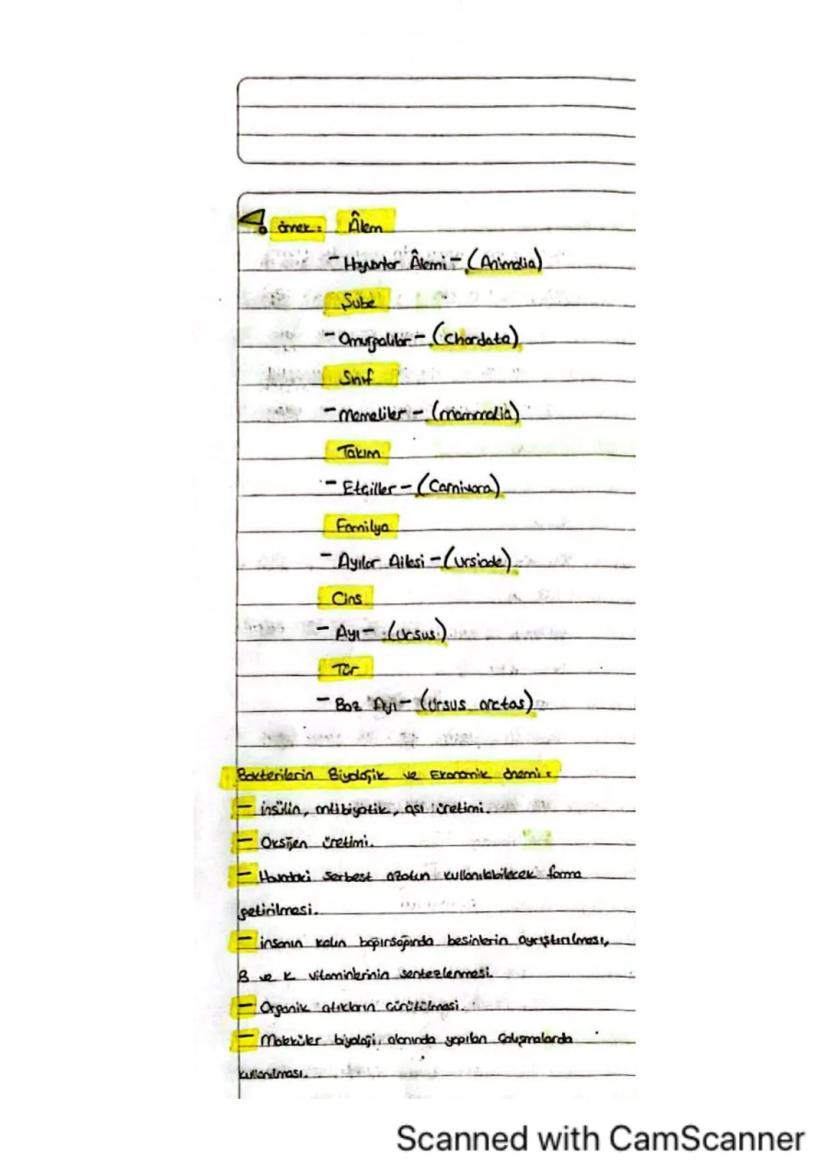 örnek: Âlem
- Hayvanlar Âlemi - (Animalia)
Şube
- Omurgalılar - (Chordata)
Sınıf
- Memeliler - (mammalia)
Takım
- Etçiller - (Carnivora)
Familya
- Ayılar Ailesi - (ursidae)
Cins
- Ayı - (ursus)
Tür
- Boz Ayı - (ursus arctos)
Bakterilerin Biyolojik ve Ekonomik önemi:
- insülin, antibiyotik, aşı üretimi.
- Oksijen üretimi.
- Havadaki serbest azotun kullanılabilecek forma
getirilmesi.
- insanın kalın bağırsağında besinlerin ayrıştırılması,
B ve K vitaminlerinin sentezlenmesi.
- Organik atıkların çürütülmesi.
- Moleküler biyoloji alanında yapılan çalışmalarda
kullanılması.
Scanned with CamScanner